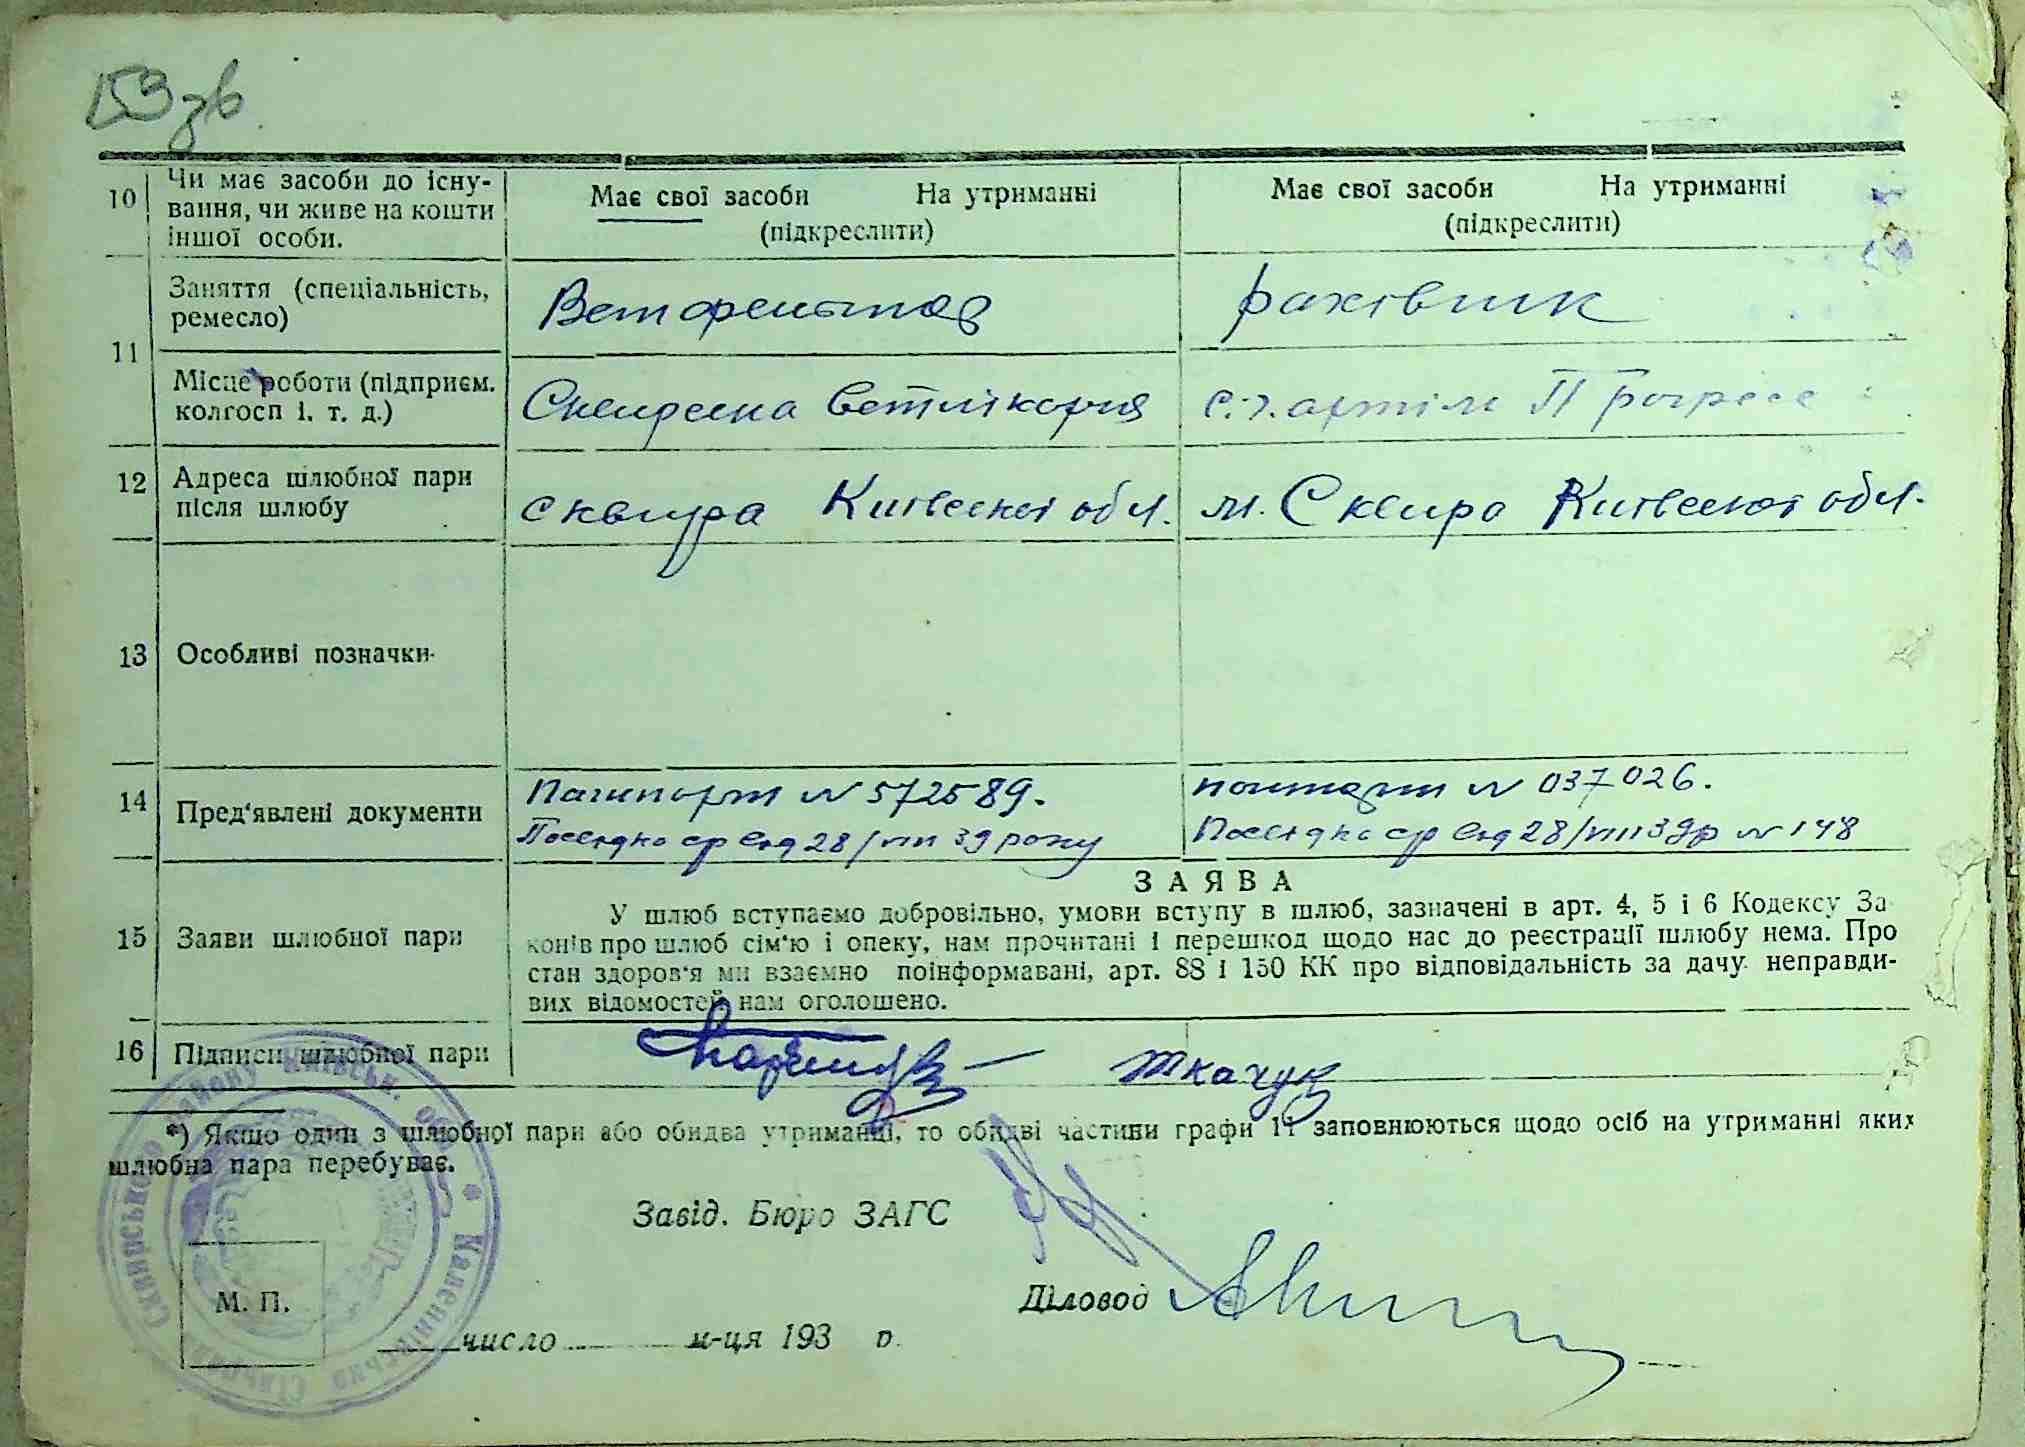 153 зв
10 Чи має засоби до існу-
вання, чи живе на кошти
іншої особи.
Має свої засоби На утриманні
(підкреслити)
Має свої засоби На утриманні
(підкреслити)
11 Заняття (спеціальність,
ремесло)
Ветфельшер
рахівник
Місце роботи (підприєм.
колгосп і. т. д.)
Сквирська ветлікарня
с.г. артіль Прогрес
12 Адреса шлюбної пари
після шлюбу
сквира Київської обл.
м. Сквира Київської обл.
13 Особливі позначки
14 Пред'явлені документи
Пашпорт № 572589.
Посвідка ср від 28/VIII 39 року
пашпорт № 037026.
Посвідка ср від 28/VIII 39р № 148
15 Заяви шлюбної пари
ЗАЯВА
У шлюб вступаємо добровільно, умови вступу в шлюб, зазначені в арт. 4, 5 і 6 Кодексу За-
конів про шлюб сім'ю і опеку, нам прочитані і перешкод щодо нас до реєстрації шлюбу нема. Про
стан здоров'я ми взаємно поінформавані, арт. 88 і 150 КК про відповідальність за дачу неправди-
вих відомостей нам оголошено.
16 Підписи шлюбної пари
Ткачук
*) Якщо один з шлюбної пари або обидва утриманці, то обидві частини графи 11 заповнюються щодо осіб на утриманні яких
шлюбна пара перебуває.
Завід. Бюро ЗАГС
Діловод
М. П.
число м-ця 193 р.
Сквирського району Київськ. обл.